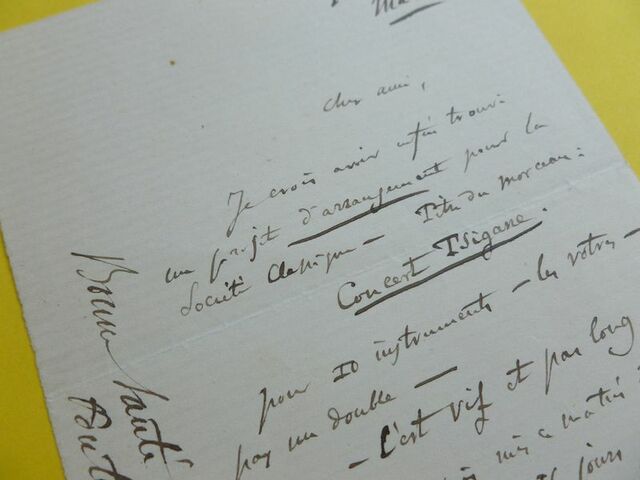 Ma
Cher ami,
Je crois avoir enfin trouvé
un projet d'arrangement pour la
Société Classique — Titre du morceau :
Concert Tsigane.
pour 10 instruments — les votres —
pas un double —
— C'est vif et pas long
mis ce matin
jours
Bonne santé